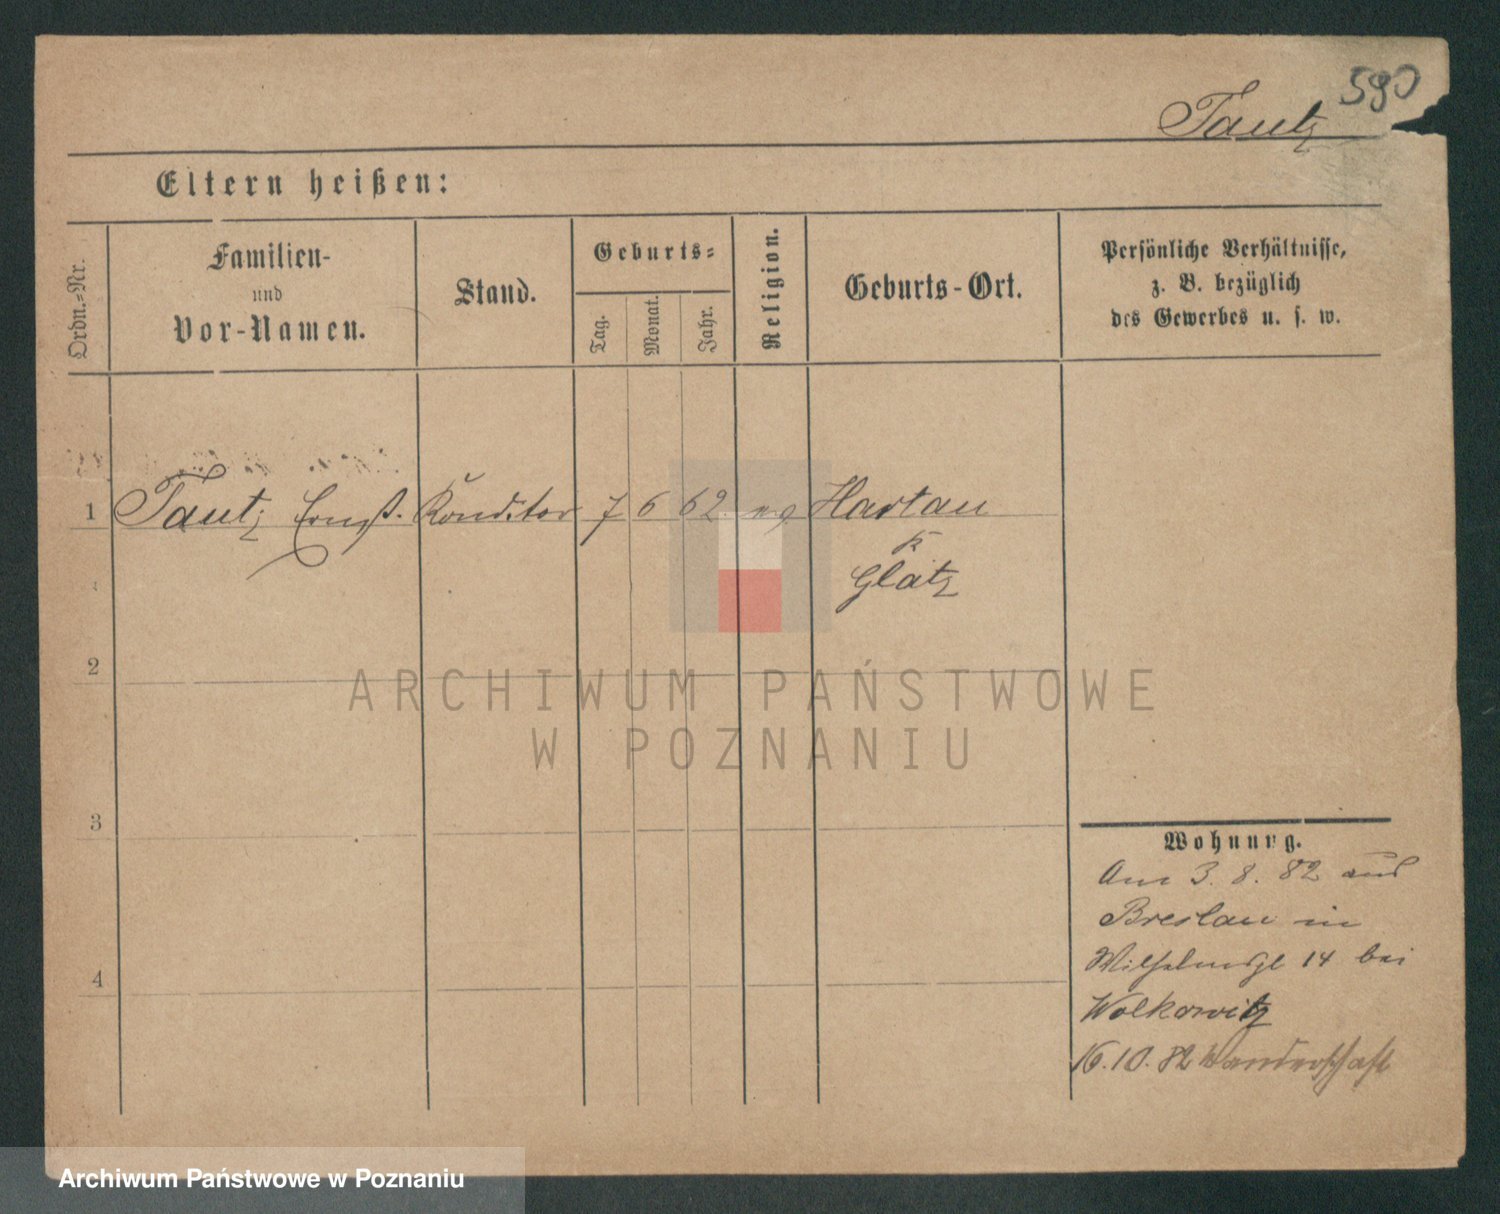 590
Tautz
Eltern heißen:
Ordn.=Nr.
Familien-
und
Vor-Namen.
Stand.
Geburts=
Tag.
Monat.
Jahr.
Religion.
Geburts-Ort.
Persönliche Verhältnisse,
z. B. bezüglich
des Gewerbes u. s. w.
1 Tautz Ernst. Konditor 7 6 62 ev Hartau
K
Glatz
2
3
4
Wohnung.
Am 3. 8. 82 aus
Breslau in
Wilhelmspl 14 bei
Wolkowitz
16. 10. 82 Wanderschaft
ARCHIWUM PAŃSTWOWE
W POZNANIU
Archiwum Państwowe w Poznaniu